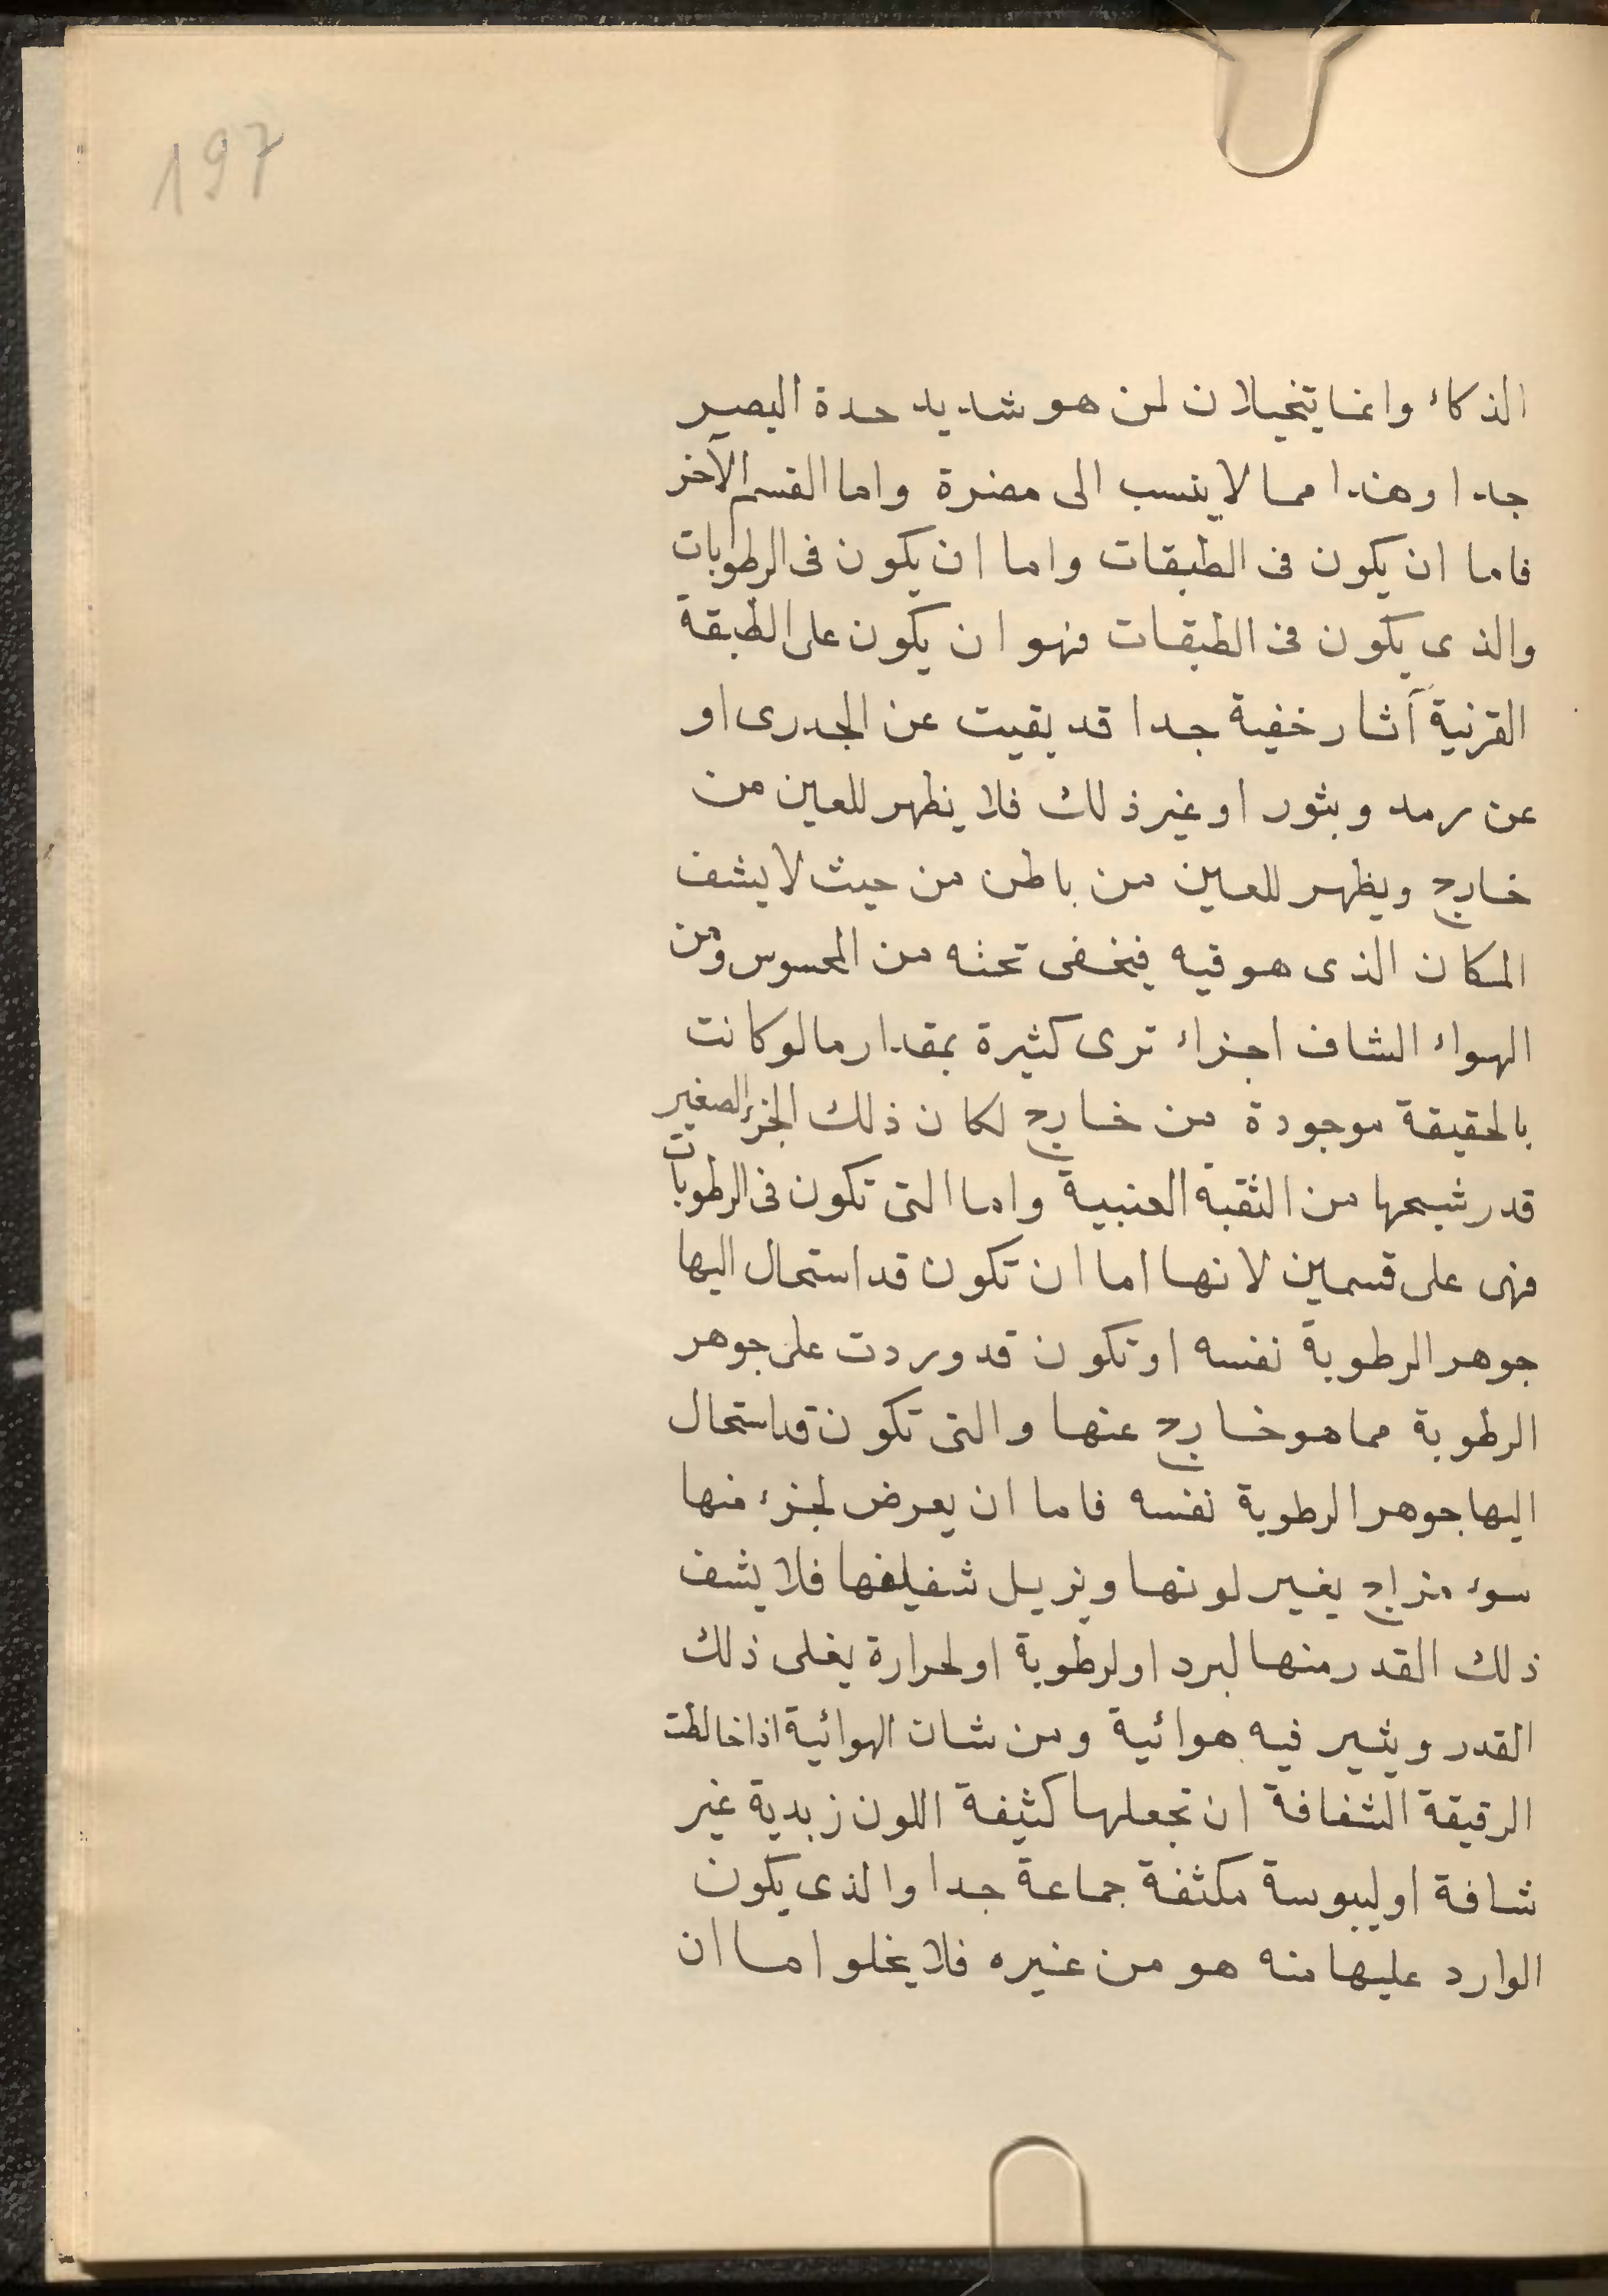 197
الذكاء وانما يتخيلان لمن هو شديد حدة البصير
جدا وهذا مما لا ينسب الى مضرة واما القسم الآخر
فاما ان يكون فى الطبقات واما ان يكون فى الرطوبات
والذى يكون فى الطبقات فهو ان يكون على الطبقة
القرنية آثار خفية جدا قد بقيت عن الجدرى او
عن رمد وبثور او غير ذلك فلا يظهر للعين من
خارج ويظهر للعين من باطن من حيث لا يشف
المكان الذى هو فيه فيخفى تحته من المحسوس ومن
الهواء الشاف اجزاء ترى كثيرة بمقدار ما لو كانت
بالحقيقة موجودة من خارج لكان ذلك الجزء الصغير
قدر شبحها من الثقبة العنبية واما التى تكون فى الرطوبات
فهى على قسمين لانها اما ان تكون قد استحال اليها
جوهر الرطوبة نفسه او تكون قد وردت على جوهر
الرطوبة مما هو خارج عنها والتى تكون قد استحال
اليها جوهر الرطوبة نفسه فاما ان يعرض لجزء منها
سوء مزاج يغير لونها ويزيل شفيفها فلا يشف
ذلك القدر منها لبرد او لرطوبة او لحرارة يغلى ذلك
القدر ويثير فيه هوائية ومن شان الهوائية اذا خالطت
الرقيقة الشفافة ان تجعلها كثيفة اللون زبدية غير
شافة او ليبوسة مكثفة جماعة جدا والذى يكون
الوارد عليها منه هو من غيره فلا يخلو اما ان